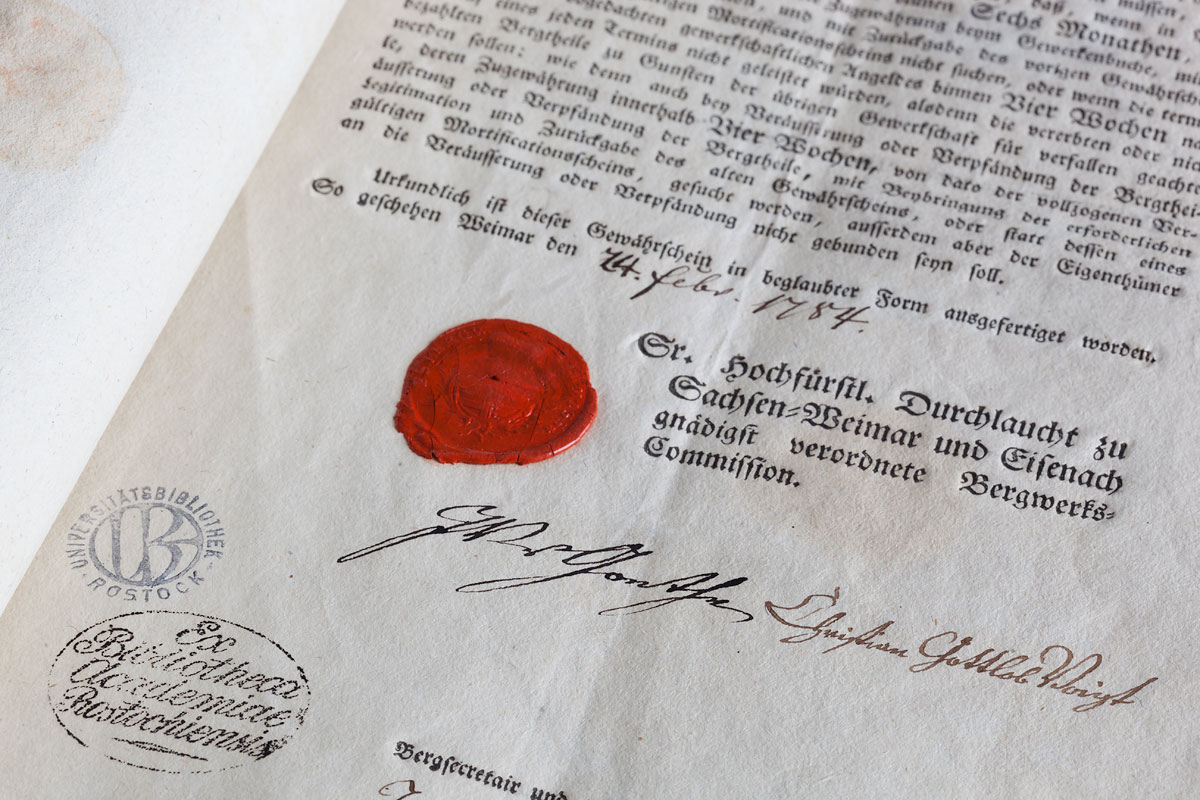 müssen,
daß, wenn in
Sechs Monathen,
und mit Zurückgabe des vorigen Gewährsch
Mortificationsscheins nicht suchen, oder wenn die term
eines jeden Termins nicht geleistet würden, alsdenn die vererbten oder nic
bezahlten Bergtheile zu Gunsten der übrigen Gewerkschaft für verfallen geacht
werden sollen: wie denn auch bey Veräusserung oder Verpfändung der Bergthei
le, deren Zugewährung innerhalb Vier Wochen, von dato der vollzogenen Ver-
äusserung oder Verpfändung der Bergtheile, mit Beybringung der erforderlichen
Legitimation und Zurückgabe des alten Gewährscheins, oder statt dessen eines
gültigen Mortificationsscheins, gesucht werden, ausserdem aber der Eigenthümer
an die Veräusserung oder Verpfändung nicht gebunden seyn soll.
Urkundlich ist dieser Gewährschein in beglaubter Form ausgefertiget worden.
So geschehen Weimar den 24. Febr. 1784.
Sr. Hochfürstl. Durchlaucht zu
Sachsen-Weimar und Eisenach
gnädigst verordnete Bergwerks-
Commission.
JWvGoethe
Christian Gottlob Voigt
UNIVERSITÄTSBIBLIOTHEK
UB
ROSTOCK
Ex
Bibliotheca
Academiae
Rostochiensis
Bergsecretair und